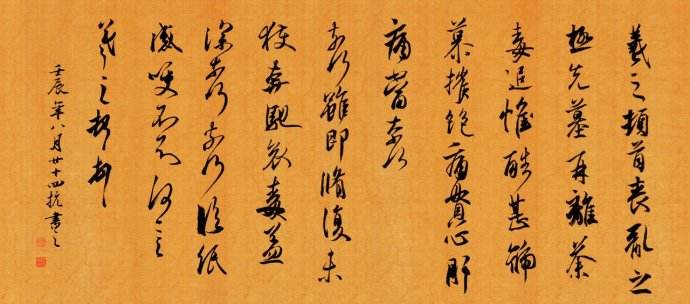 羲之頓首喪亂之
極先墓再離荼
毒追惟酷甚號
慕摧絕痛貫心肝
痛當奈何
奈何雖即脩復未
獲奔馳哀毒益
深奈何奈何臨紙
感哽不知何言
羲之頓首頓首
壬辰年八月廿十四抗書之